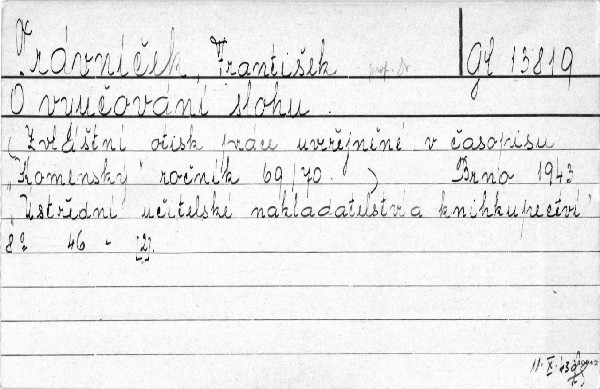 Trávníček, František prof. Dr. Gl 13819
O vyučování slohu.
(Zvláštní otisk práce uveřejněné v časopisu
„Komenský" ročník 69/70. ) Brno 1943
„Ústřední učitelské nakladatelství a knihkupectví"
8° 46 - [2].
11. X. 43